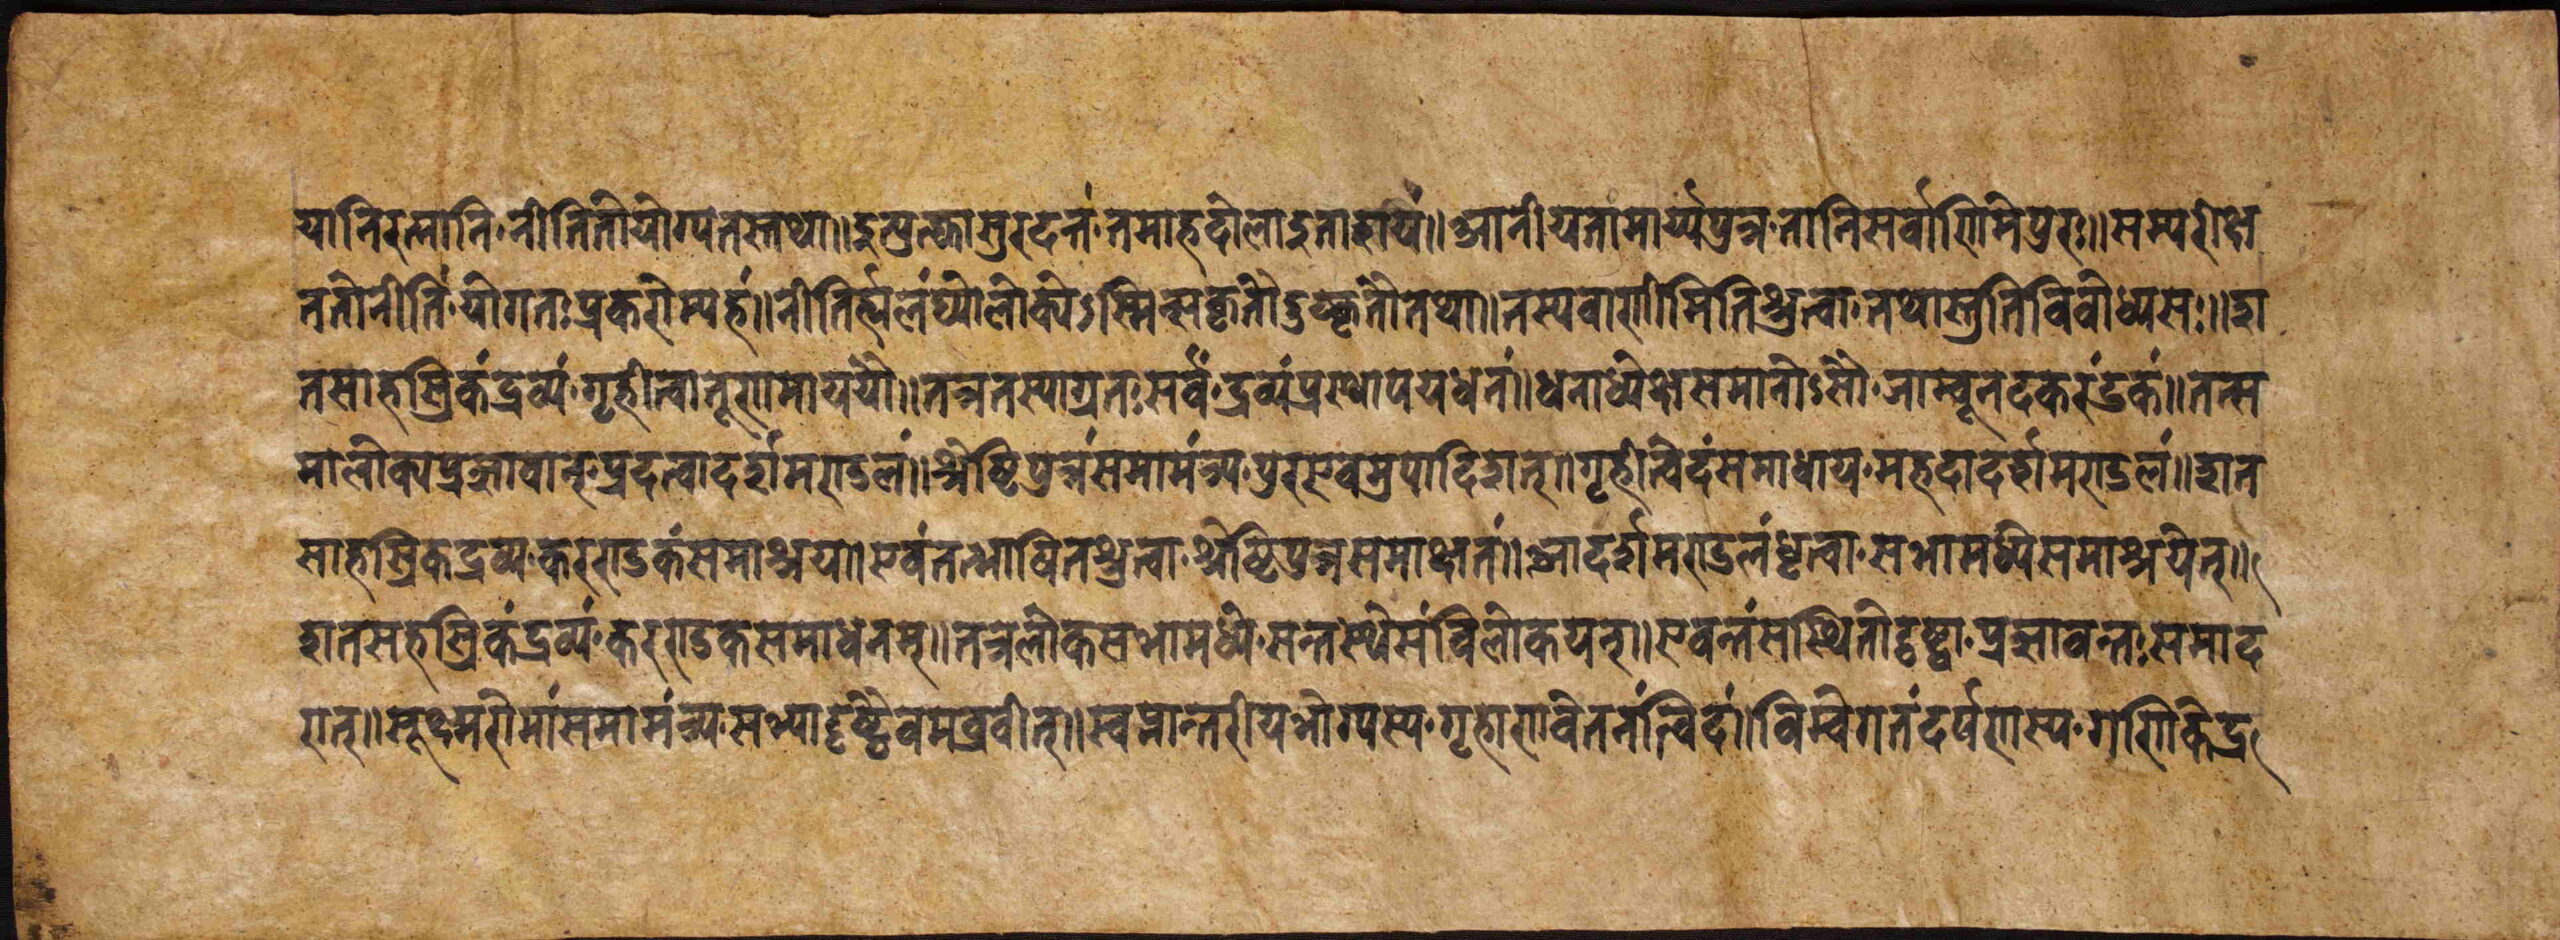 यानिरत्नानि नीतितोयोग्यतस्तथा॥इत्युत्क्वासुरदत्तं तमाहदोलाडताशयं॥आनीयतामार्य्यपुत्र तानिसर्वाणिमेपुरः॥सम्परीक्ष
ततोनीतिं योगतःप्रकरोम्यहं॥नीतिर्त्वलंघ्यालोक्येऽस्मिन्सकृतौदुष्कृतौतथा॥तस्यवाणीमितिश्रुत्वा तथास्तुतिविबोध्यसः॥श
तसाहस्रिकंद्रव्यं गृहीत्वातूणामाययौ॥तत्रतस्याग्रतःसर्वं द्रव्यंप्रस्थापयधनं॥धनाध्येक्षसमानोऽसौ जाम्बूनदकरंडकं॥तत्स
मालोक्यप्रज्ञावान् प्रदत्वादर्शमण्डलं॥श्रेष्ठिपुत्रंसमामंत्र्य पुरएवमुपादिशत्॥गृहीत्वेदंसमाधाय महदादर्शमण्डलं॥शत
साहस्रिकद्रव्य करण्डकंसमाश्रय॥एवंतत्भाषितश्रुत्वा श्रेष्ठिपुत्रसमाक्षतं॥आदर्शमण्डलंधृत्वा सभामध्येसमाश्रयेत्॥
शतसहस्रिकंद्रव्यं करण्डकसमाधनम्॥तत्रलोकसभामध्ये सन्तस्थेसंविलोकयत्॥एवन्तंसस्थितोदृष्ट्वा प्रज्ञावन्तःसमाद
रात्॥सूक्ष्मरोमांसमामंत्र्य सभ्यादृष्ट्वैवमब्रवीत्॥स्वप्नान्तरीयभोग्यस्य गृहाणवेतनंत्विदं॥विम्वेगतंदर्पणस्य गणिकेद्र